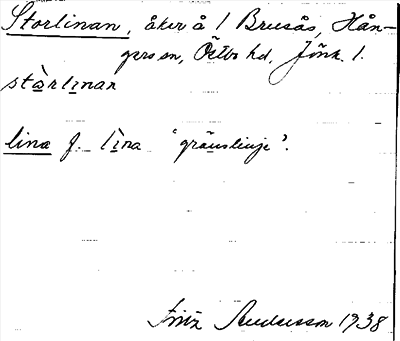 Storlinan, åker å 1 Brusås, Hån-
gers sn, Östbo hd, Jönk. l.
stàrlìnan
lina f. lìna 'gränslinje'.
Fritz 1938